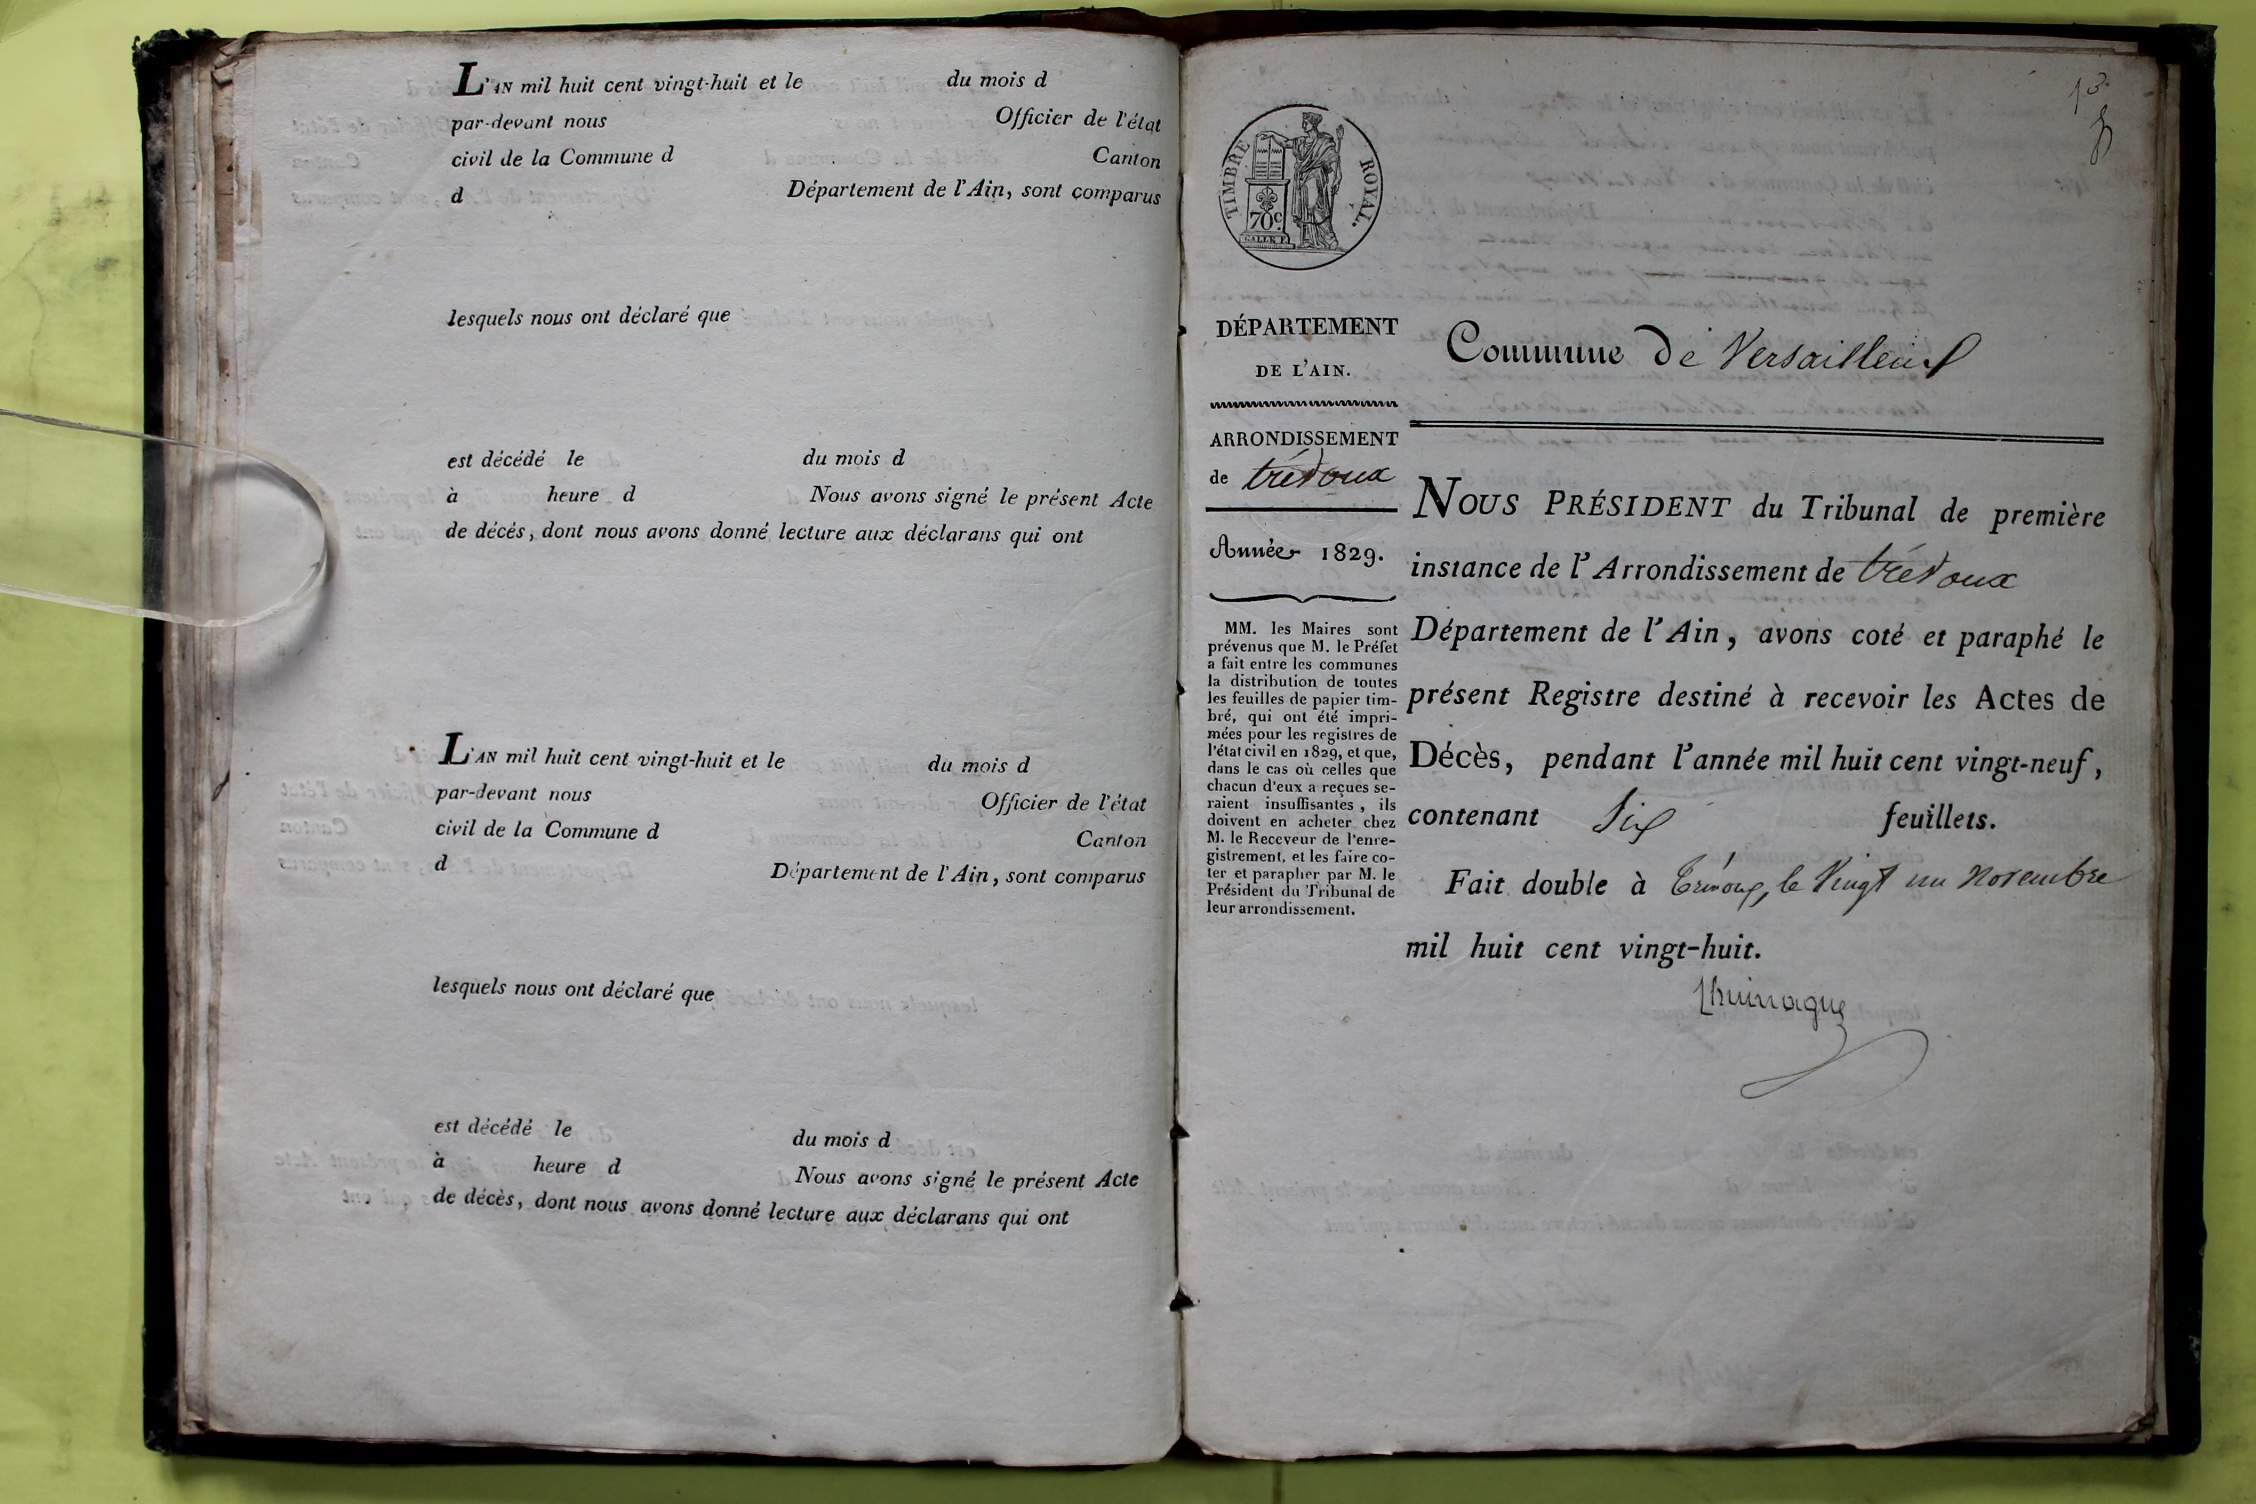 L'AN mil huit cent vingt-huit et le du mois d
par-devant nous Officier de l'état
civil de la Commune d Canton
d Département de l'Ain, sont comparus
lesquels nous ont déclaré que
est décédé le du mois d
à heure d Nous avons signé le présent Acte
de décés, dont nous avons donné lecture aux déclarans qui ont
L'AN mil huit cent vingt-huit et le du mois d
par-devant nous Officier de l'état
civil de la Commune d Canton
d Département de l'Ain, sont comparus
lesquels nous ont déclaré que
est décédé le du mois d
à heure d Nous avons signé le présent Acte
de décès, dont nous avons donné lecture aux déclarans qui ont
TIMBRE ROYAL.
70c.
DÉPARTEMENT
DE L'AIN.
ARRONDISSEMENT
de trévoux
Année 1829.
MM. les Maires sont
prévenus que M. le Préfet
a fait entre les communes
la distribution de toutes
les feuilles de papier tim-
bré, qui ont été impri-
mées pour les registres de
l'état civil en 1829, et que,
dans le cas où celles que
chacun d'eux a reçues se-
raient insuffisantes, ils
doivent en acheter chez
M. le Receveur de l'enre-
gistrement, et les faire co-
ter et parapher par M. le
Président du Tribunal de
leur arrondissement.
Commune de Versailleux
NOUS PRÉSIDENT du Tribunal de première
instance de l'Arrondissement de trévoux
Département de l'Ain, avons coté et paraphé le
présent Registre destiné à recevoir les Actes de
Décès, pendant l'année mil huit cent vingt-neuf,
contenant Six feuillets.
Fait double à Trévoux, le Vingt un Novembre
mil huit cent vingt-huit.